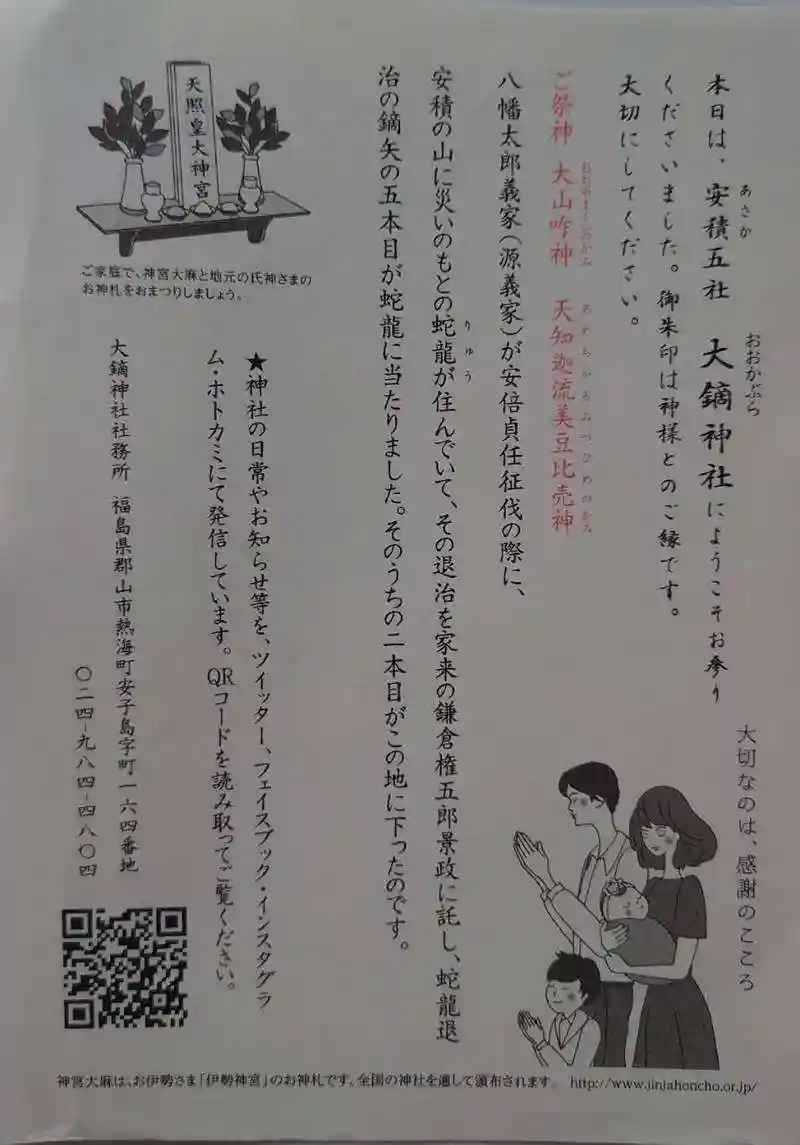 本日は、安積五社 大鏑神社にようこそお参り
あさか
おおかぶら
くださいました。御朱印は神様とのご縁です。
大切にしてください。
ご祭神 大山咋神 天知迦流美豆比売神
おおやまくいのかみ
あめちかるみづひめのかみ
八幡太郎義家(源義家)が安倍貞任征伐の際に、
安積の山に災いのもとの蛇龍が住んでいて、その退治を家来の鎌倉権五郎景政に託し、蛇龍退
りゅう
治の鏑矢の五本目が蛇龍に当たりました。そのうちの二本目がこの地に下ったのです。
大切なのは、感謝のこころ
天照皇大神宮
ご家庭で、神宮大麻と地元の氏神さまの
お神札をおまつりしましょう。
★神社の日常やお知らせ等を、ツイッター、フェイスブック・インスタグラ
ム・ホトカミにて発信しています。QRコードを読み取ってご覧ください。
大鏑神社社務所 福島県郡山市熱海町安子島字町一六四番地
〇二四-九八四-四八〇四
神宮大麻は、お伊勢さま「伊勢神宮」のお神札です。全国の神社を通して頒布されます。 http://www.jinjahoncho.or.jp/